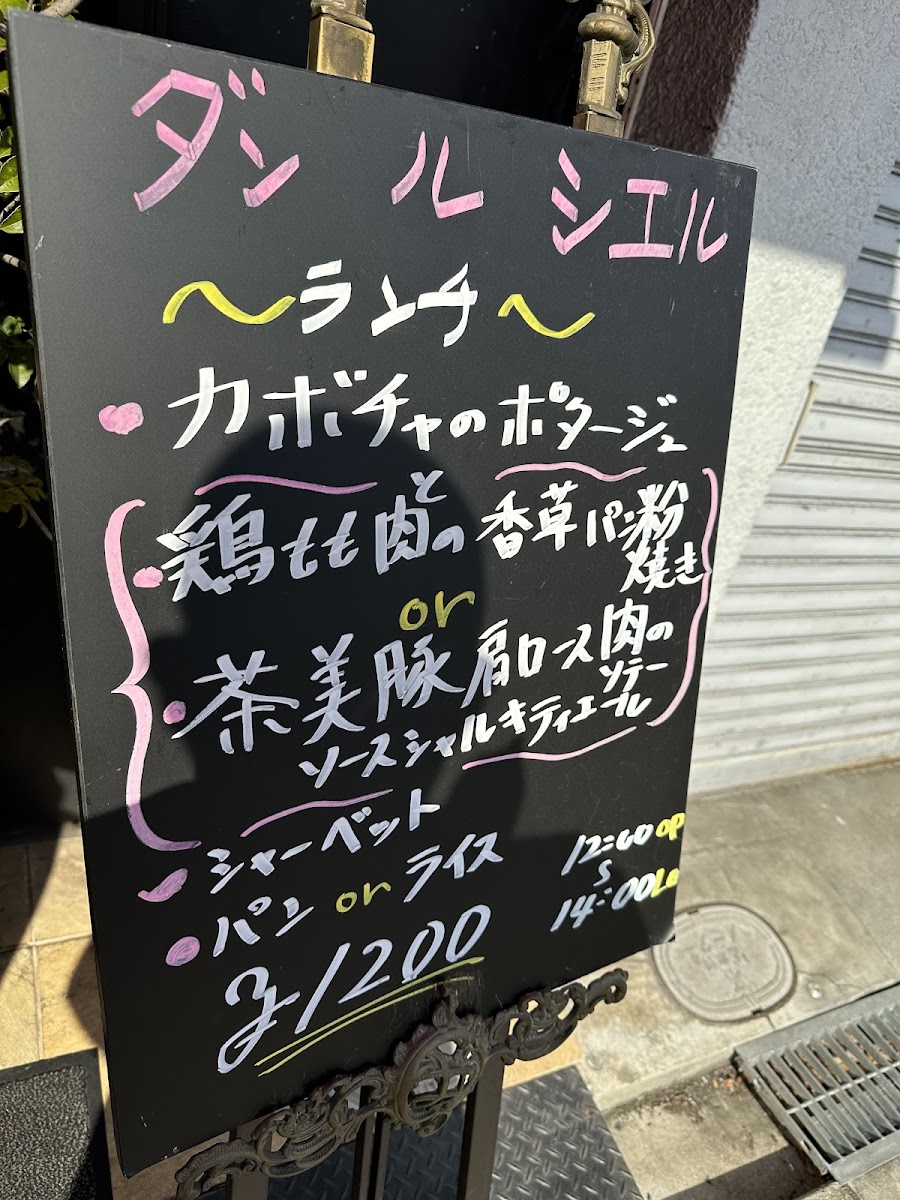 ダン ル シエル
～ランチ～
カボチャのポタージュ
鶏もも肉の香草パン粉焼き
or
茶美豚肩ロース肉のソテー
ソースシャルキティエール
シャーベット
パン or ライス
12:00 op
14:00 Lo
1200